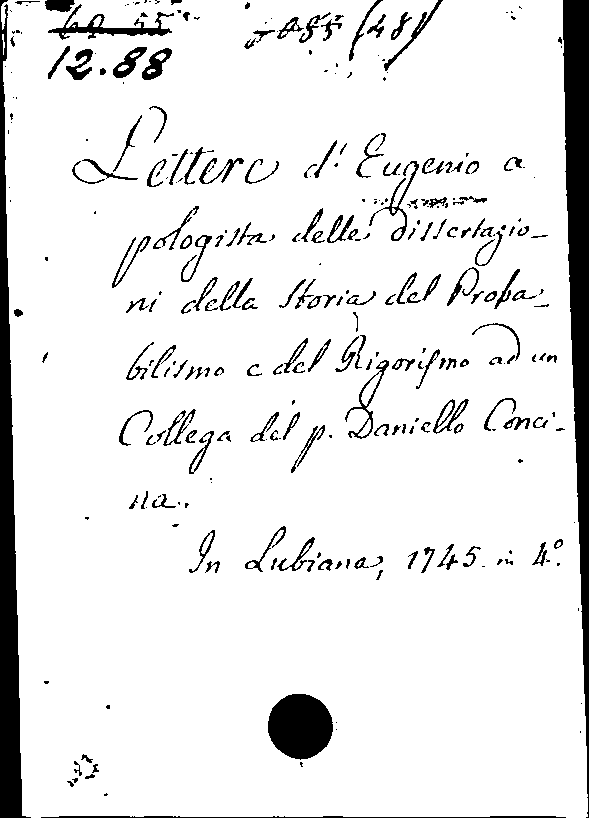 69 55
12.88
Lettere d'Eugenio a
pologista delle dissertazio-
ni della Storia del Proba-
bilismo e del Rigorismo ad un
Collega del p. Daniello Conci-
na.
In Lubiana, 1745. in 4.º